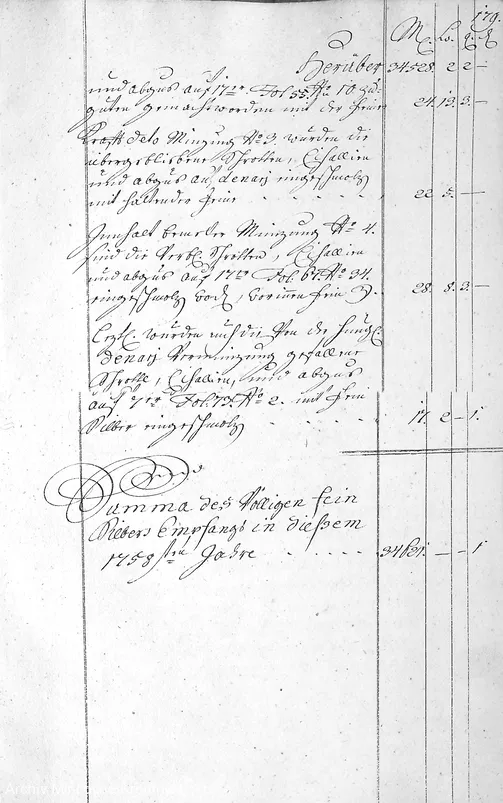 179.
M. Lo. q. d
Herüber 34528. 2 2 —
und abgus auf 17er. Fol. 55. No. 10. zu
guten gemacht worden mit der feine 24. 13. 3. —
Krafft deto Münzung No. 3. wurden die
übergebliebene Schrotten, Cisallien
und abgus auf denarj eingeschmolz
mit haltender feine . . . . . 22 5. —
Innhalt Münzung No. 4.
sind die Schrotten, Cisallien
und abgus auf 17er Fol. 67. No. 34.
eingeschmolz worden 28. 8. 3. —
Lezl. wurden auch die von der
denarj Vermünzung gefallene
Schrotten, Cisallien, und abgus
auf 7er Fol. 73. No. 2. mit fein
Silber eingeschmolz . . . . . 17. 2 — 1.
Summa des Völligen fein
Silbers Empfangs in dießem
1758sten Jahre . . . . . 34631. — — 1
Archiv